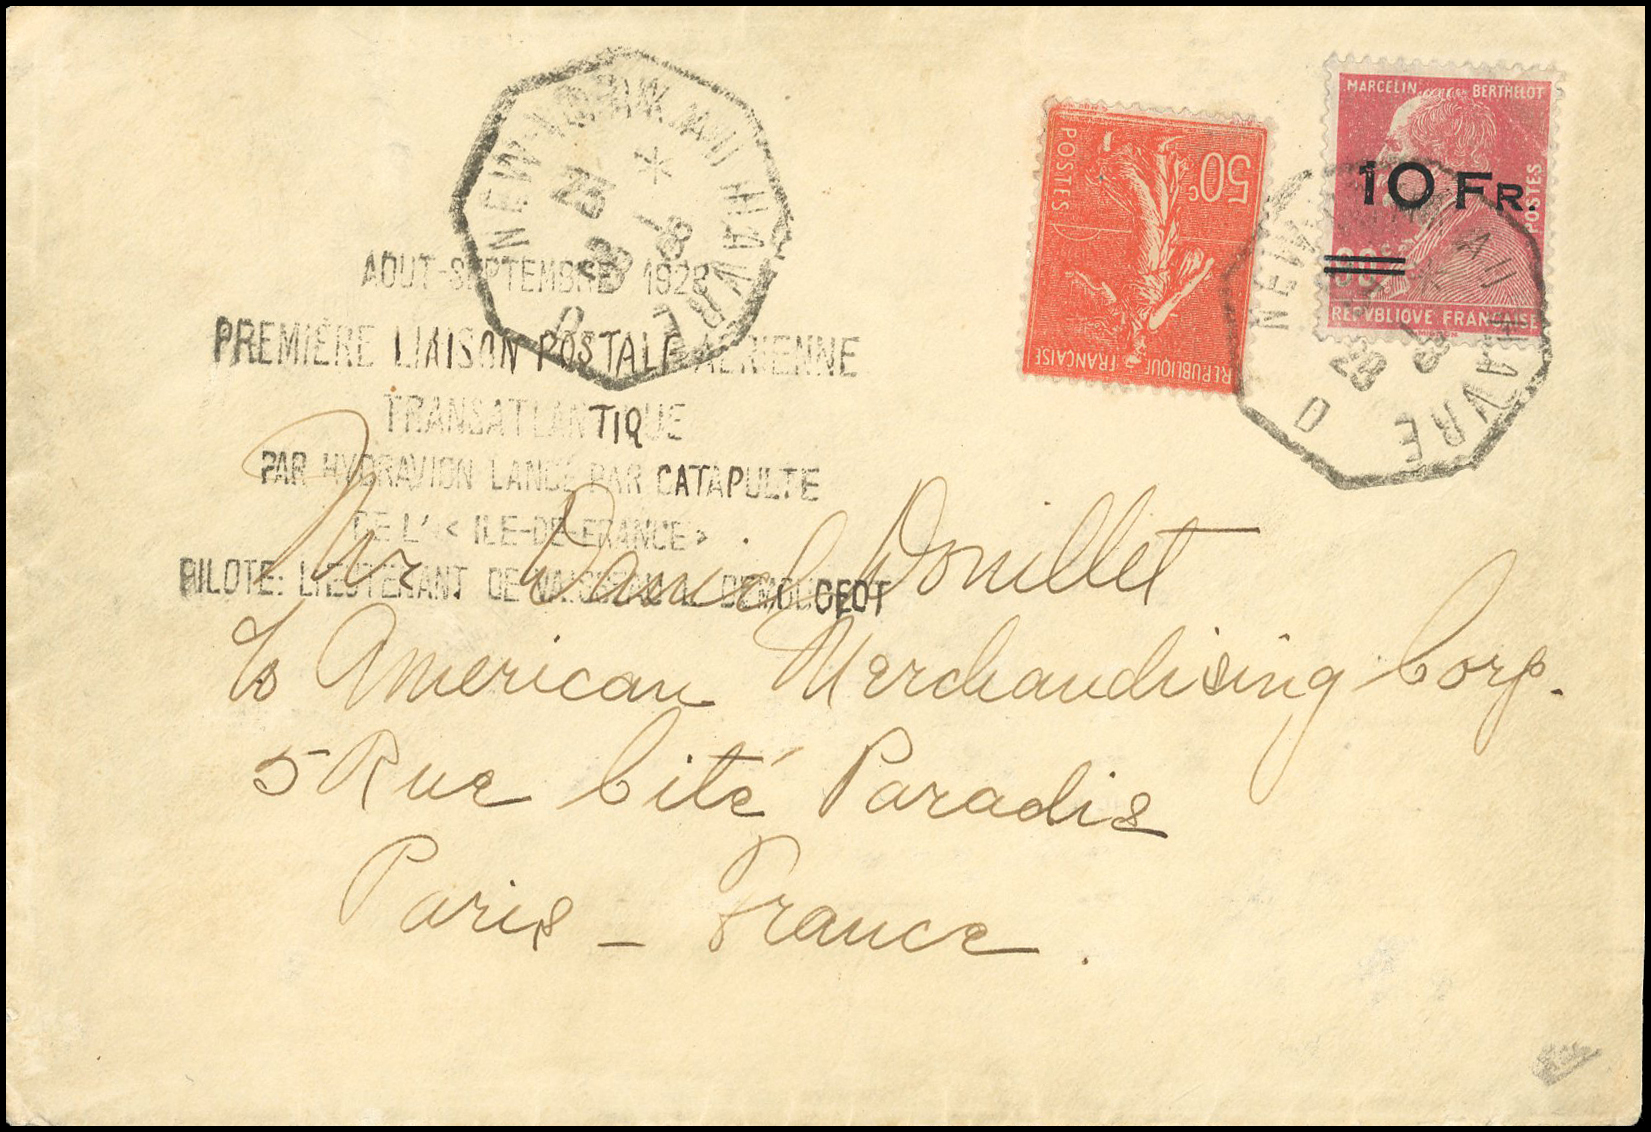 NEW-YORK AU HAVRE D
23
8
28
MARCELIN BERTHELOT
10 FR.
POSTES
90c
REPVBLIQVE FRANÇAISE
POSTES
50c
REPUBLIQUE FRANÇAISE
NEW AU HAVRE D
28
AOUT-SEPTEMBRE 1928
PREMIÈRE LIAISON POSTALE AÉRIENNE
TRANSATLANTIQUE
PAR HYDRAVION LANCÉ PAR CATAPULTE
DE L' « ILE-DE-FRANCE »
PILOTE: LIEUTENANT DE VAISSEAU L. DEMOUGEOT
Mr Daniel Douillet
℅ American Merchandising Corp.
5 Rue Cité Paradis
Paris – France.